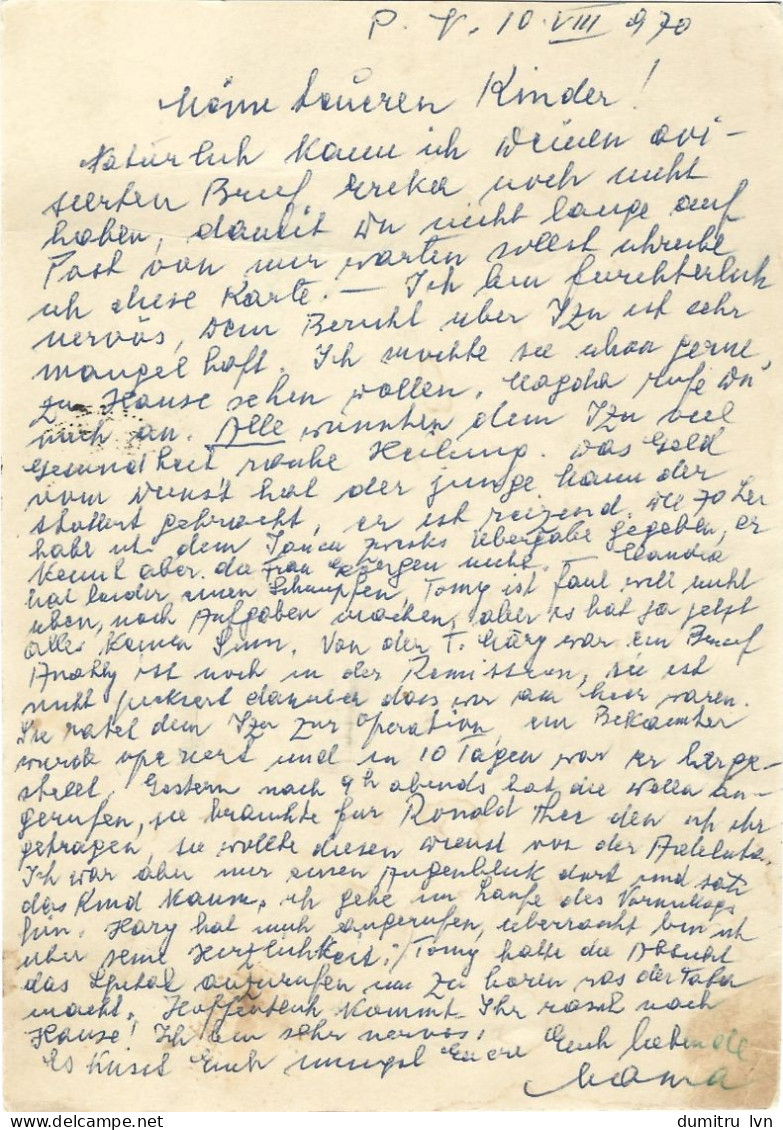 P. N. 10 VIII 970
Meine teueren Kinder!
Natürlich kann ich deinen avi-
sierten Brief noch nicht
haben, damit du nicht lange auf
Post von mir warten sollst schreibe
ich diese Karte. — Ich bin fürchterlich
nervös, dein Bericht über Izu ist sehr
mangelhaft. Ich möchte sie schon gerne,
zu Hause sehen wollen. Magda rufe
mich an. Alle wünschen dem Izu viel
Gesundheit rasche Heilung. Das Geld
vom hat der junge Mann der
gebracht, er ist reizend. Die 70 Lei
habe ich dem zwecks Übergabe gegeben, er
kennt aber die Frau nicht. — Claudia
hat leider einen Schnupfen, Tomy ist faul will nicht
üben, noch Aufgaben machen, aber es hat ja jetzt
alles keinen Sinn. Von der T. Mary war ein Brief
ist noch in der Remission, sie ist
nicht darüber dass wir am Meer waren.
Sie ratet dem Izu zur Operation, ein Bekannter
wurde operiert und in 10 Tagen war er herge-
stellt. Gestern nach 9h abends hat die Wolla an-
gerufen, sie brauchte für Ronald Thee den ich ihr
getragen, sie wollte diesen von der
Ich war aber nur einen Augenblick dort und sah
das Kind kaum, ich gehe im Laufe des Vormittags
hin. Hary hat mich angerufen, überrascht bin ich
über seine Herzlichkeit. Tomy hatte die Absicht
das Spital anzurufen um zu hören was der Tata
macht. Hoffentlich kommt Ihr rasch nach
Hause! Ich bin sehr nervös!
Es küsst Euch innigst Euere Euch liebende
Mama
dumitru lvn